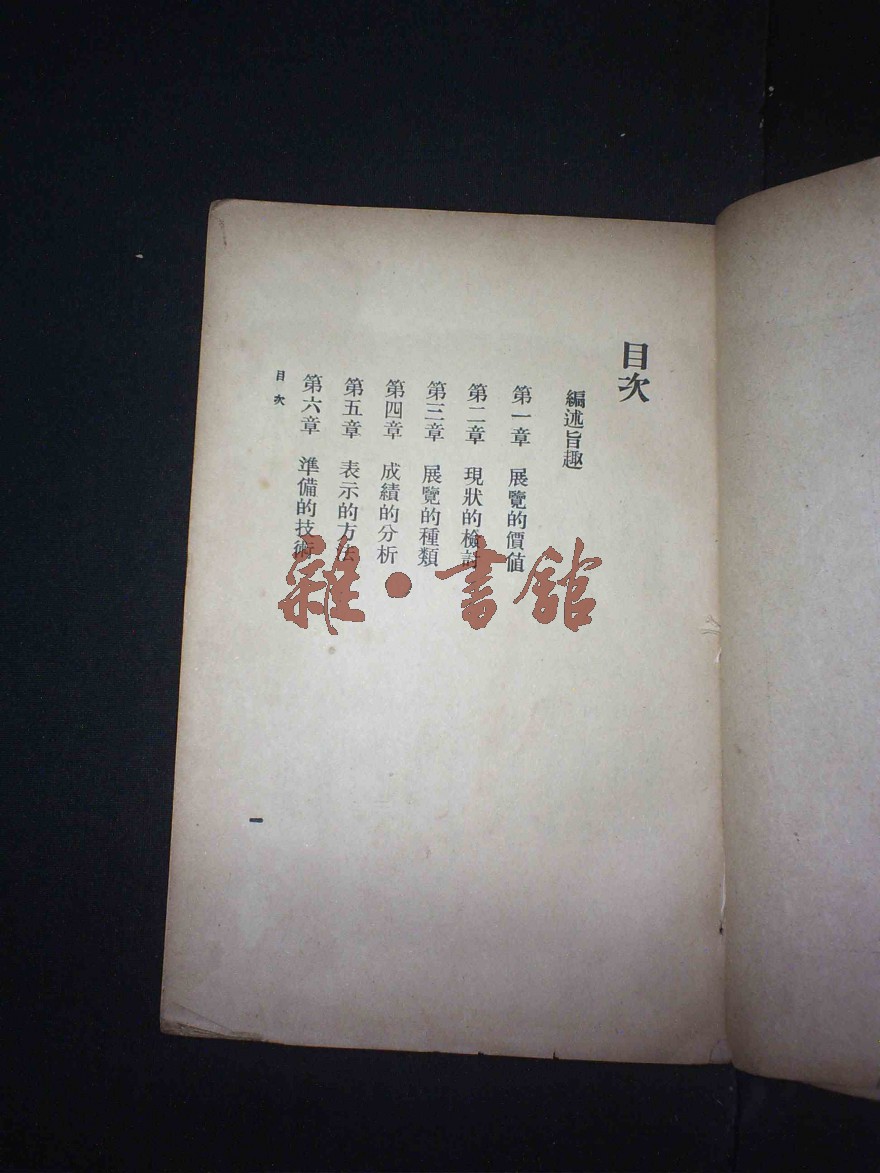 目次
編述旨趣
第一章 展覽的價值
第二章 現狀的檢討
第三章 展覽的種類
第四章 成績的分析
第五章 表示的方法
第六章 準備的技術
目次
一
雜·書館